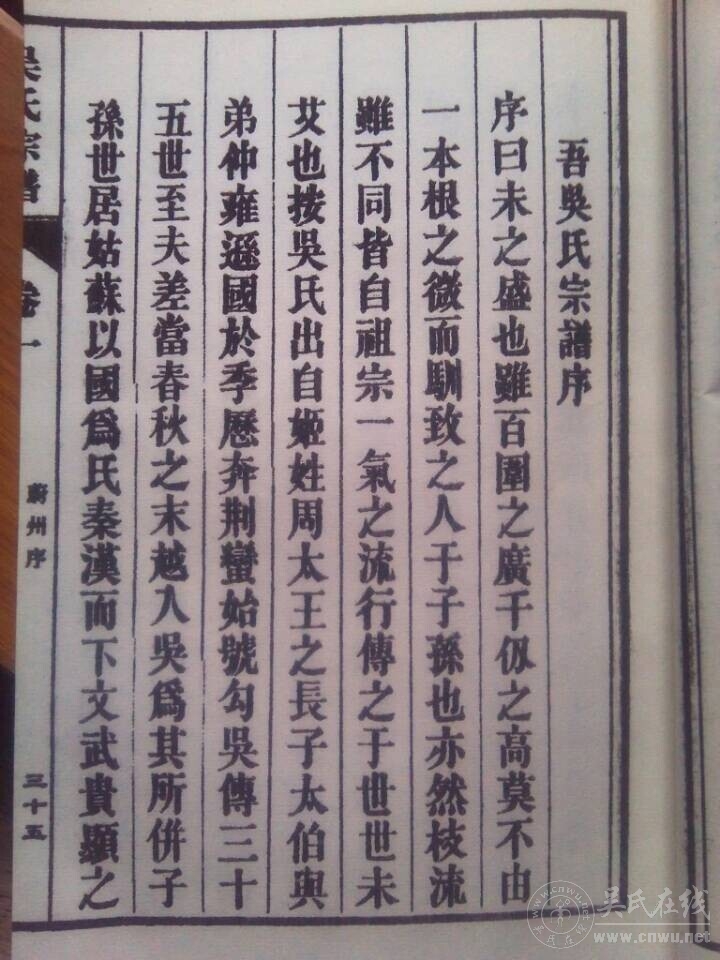 吾吳氏宗譜序
序曰未之盛也雖百圍之廣千仭之高莫不由
一本根之微而馴致之人于子孫也亦然枝流
雖不同皆自祖宗一氣之流行傳之于世世未
艾也按吳氏出自姬姓周太王之長子太伯與
弟仲雍遜國於季歷奔荆蠻始號勾吳傳三十
五世至夫差當春秋之末越入吳爲其所併子
孫世居姑蘇以國爲氏秦漢而下文武貴顯之
吳氏宗譜 卷一 蔚州序 三十五
吴氏在线
www.cnwu.net